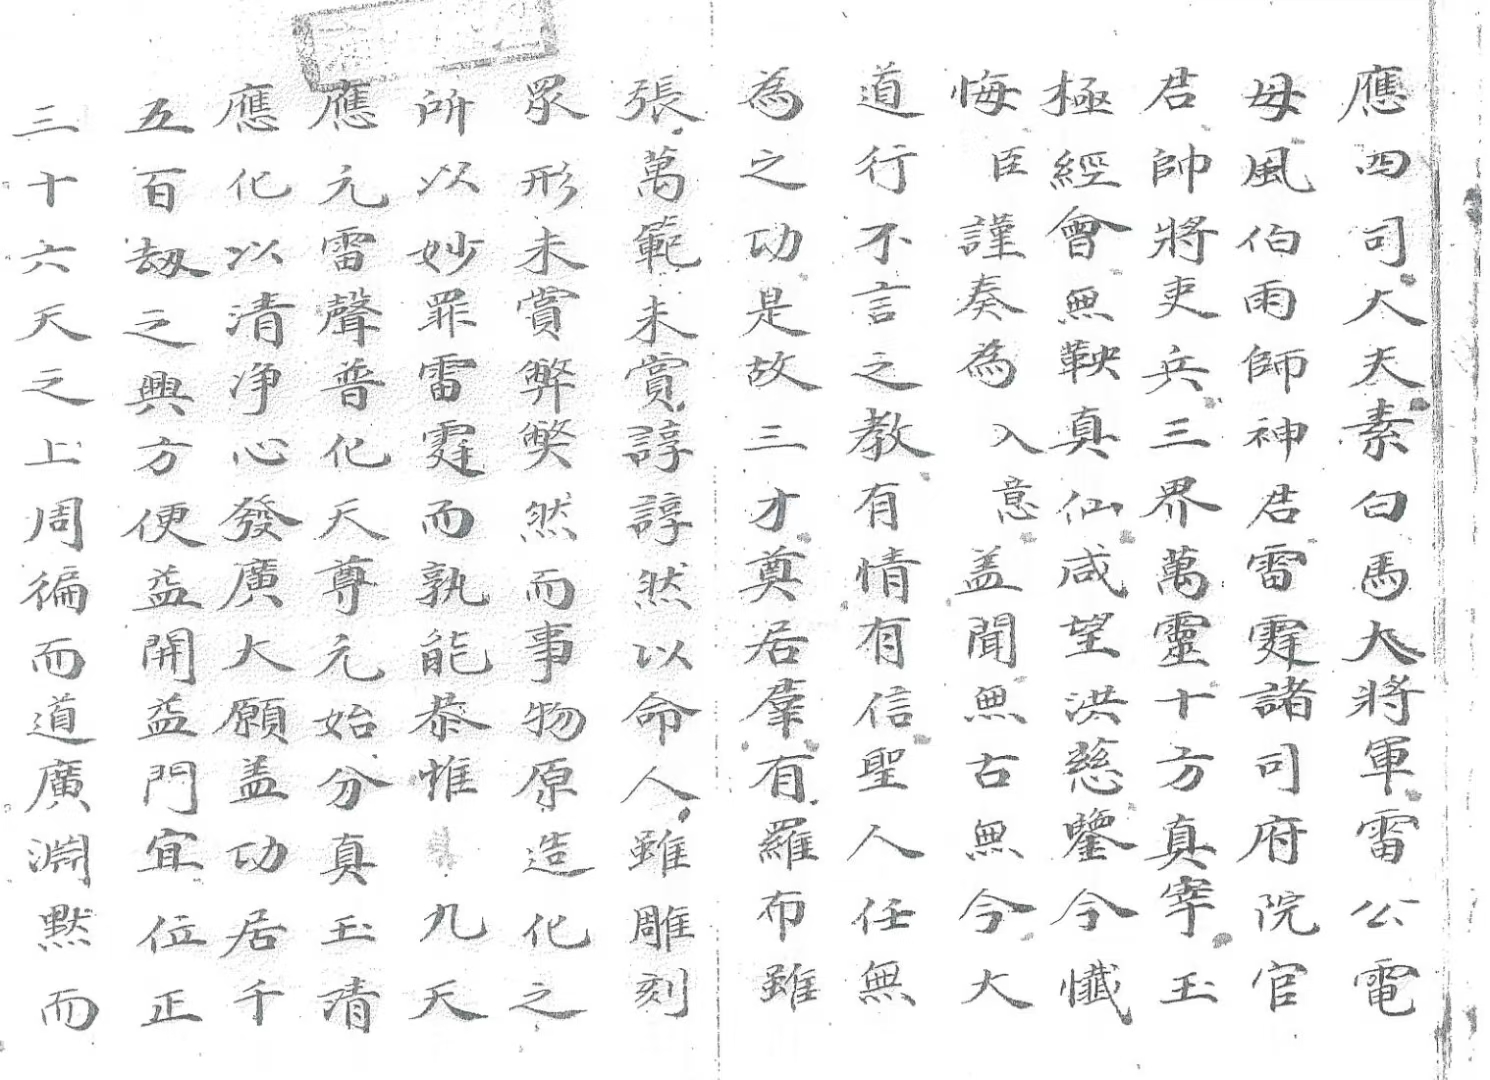 應四司大夭素白馬大將軍雷公電
母風伯雨師神君雷霆諸司府院官
君帥將吏兵三界萬靈十方真宰玉
極經會無鞅真仙咸望洪慈鑒今懺
悔臣謹奏為入意盖聞無古無今大
道行不言之教有情有信聖人任無
為之功是故三才奠居羣有羅布雖
張萬範未賞諄諄然以命人雖雕刻
眾形未賞弊獘然而事物原造化之
所以妙罪雷霆而孰能恭惟九天
應元雷聲普化天尊元始分真玉清
應化以清净心發廣大願盖功居千
五百劫之興方便益開益門宜位正
三十六天之上周徧而道廣淵默而